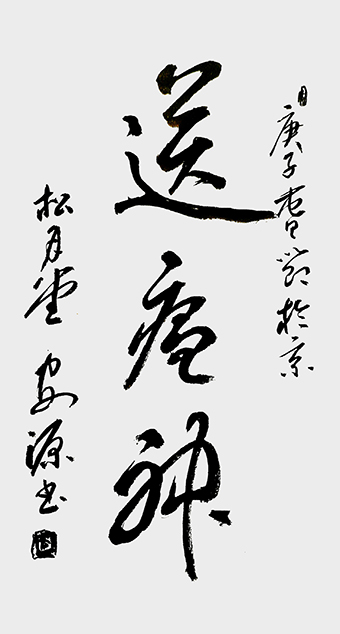 庚子春節於京
送瘟神
松月堂 安源书